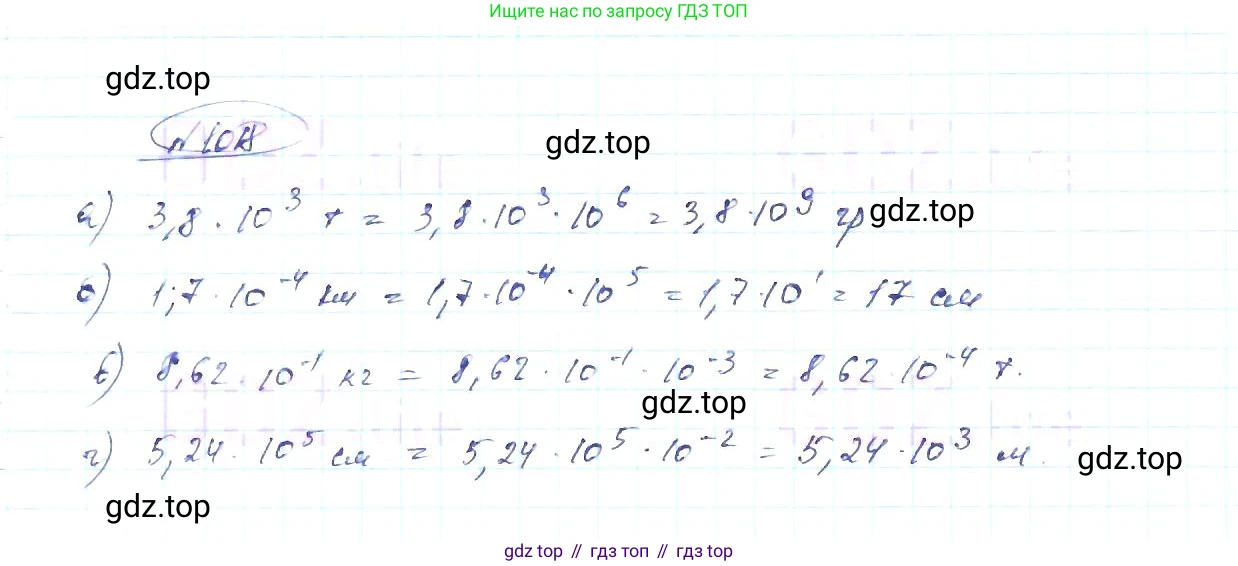 Ищите нас по запросу ГДЗ ТОП
gdz.top
№1018
gdz.top
а) 3,8 · 10³ т = 3,8 · 10³ · 10⁶ = 3,8 · 10⁹ гр
gdz.top
б) 1,7 · 10⁻⁴ км = 1,7 · 10⁻⁴ · 10⁵ = 1,7 · 10¹ = 17 см
в) 8,62 · 10⁻¹ кг = 8,62 · 10⁻¹ · 10⁻³ = 8,62 · 10⁻⁴ т.
gdz.top
г) 5,24 · 10⁵ см = 5,24 · 10⁵ · 10⁻² = 5,24 · 10³ м.
gdz.top
gdz.top
gdz top // гдз топ // гдз top